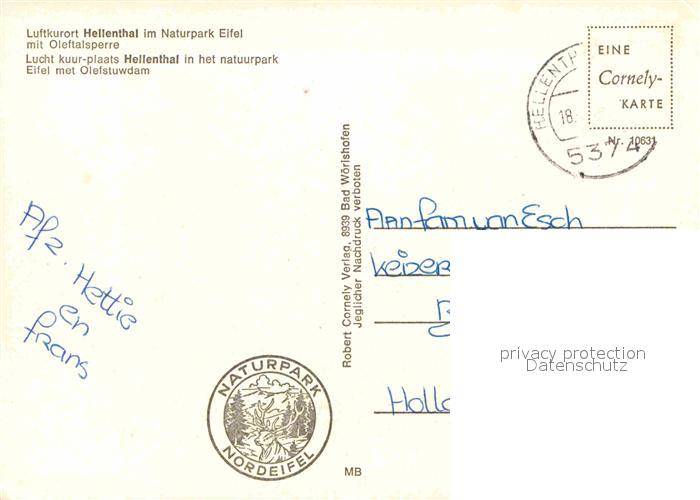 Luftkurort Hellenthal im Naturpark Eifel
mit Oleftalsperre
Lucht kuur-plaats Hellenthal in het natuurpark
Eifel met Olefstuwdam
EINE
Cornely-
KARTE
Nr. 10631
HELLENTH
18.
5374
Robert Cornely Verlag, 8939 Bad Wörishofen
Jeglicher Nachdruck verboten
Afz. Hettie
en
frans
Aan fam van Esch
Keizer
Holl
NATURPARK
NORDEIFEL
MB
privacy protection
Datenschutz